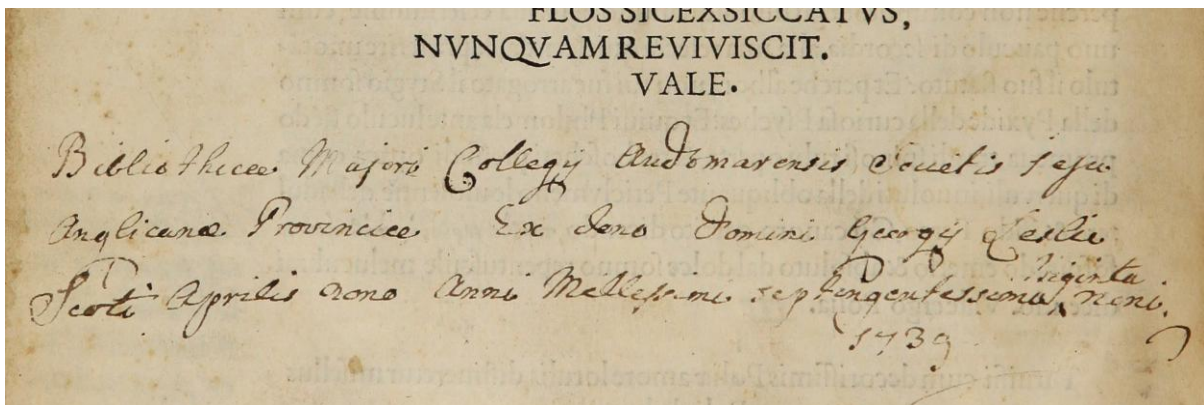 FLOS SIC EXSICCATVS,
NVNQVAM REVIVISCIT.
VALE.
Bibliothecæ Majoris Collegij Audomarensis Socictis Jesu
Anglicanæ Provinciæ Ex dono Domini Georgij Leslie
viginta
Scoti Aprilis nono Anni Mellessimi septengentessima noni.
1739